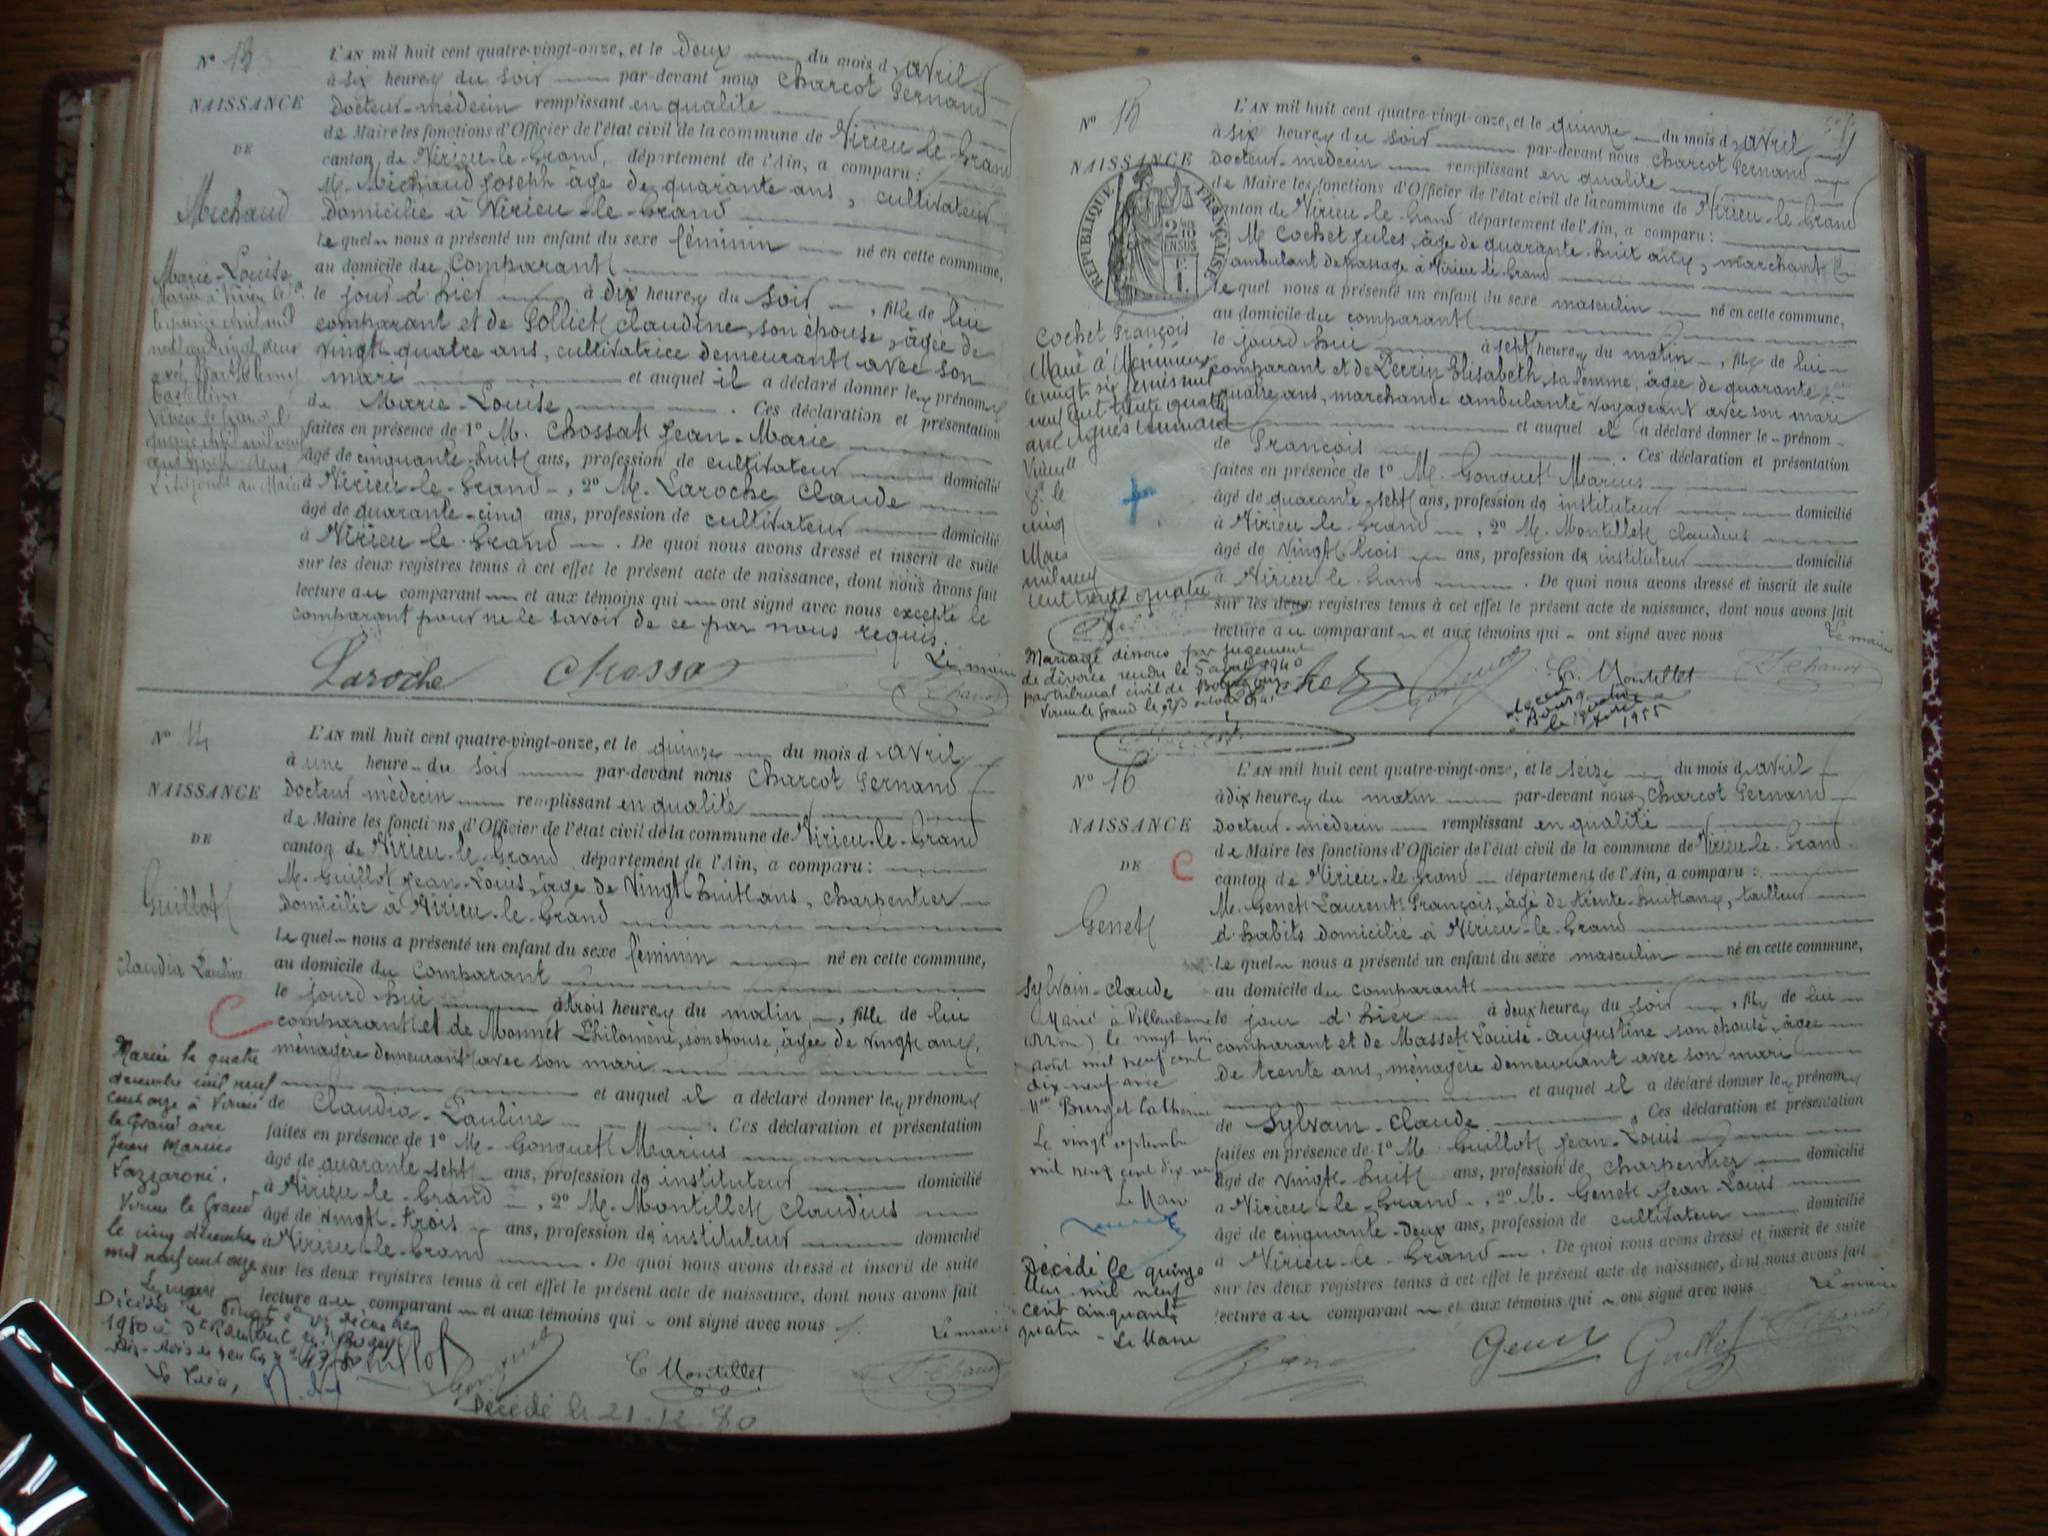 Nº 13
NAISSANCE
DE
Michaud
Marie-Louise
L'AN mil huit cent quatre-vingt-onze, et le deux du mois d'avril
à six heures du soir par-devant nous Charcot Fernand
Docteur-médecin remplissant en qualité
de Maire les fonctions d'Officier de l'état civil de la commune de Virieu-le-Grand
canton de Virieu-le-Grand, département de l'Ain, a comparu :
M. Michaud Joseph âgé de quarante ans, cultivateur
domicilié à Virieu-le-Grand
lequel nous a présenté un enfant du sexe féminin né en cette commune,
au domicile du comparant
le jour d'hier à dix heures du soir, fille de lui
comparant et de Polliet Claudine, son épouse, âgée de
vingt-quatre ans, cultivatrice demeurant avec son
mari et auquel il a déclaré donner les prénoms
de Marie-Louise. Ces déclaration et présentation
faites en présence de 1º M. Chossat Jean-Marie
âgé de cinquante-huit ans, profession de cultivateur domicilié
à Virieu-le-Grand, 2º M. Laroche Claude
âgé de quarante-cinq ans, profession de cultivateur domicilié
à Virieu-le-Grand. De quoi nous avons dressé et inscrit de suite
sur les deux registres tenus à cet effet le présent acte de naissance, dont nous avons fait
lecture au comparant et aux témoins qui ont signé avec nous excepté le
comparant pour ne le savoir de ce par nous requis.
Le maire
Laroche Chossat
Nº 14
NAISSANCE
DE
Guillot
Claudia Pauline
C
Mariée le quatre
décembre mil neuf
cent onze à Virieu
le Grand avec
Jean Marius
Lazzaroni.
Virieu le Grand
le cinq décembre
mil neuf cent onze
Le maire
L'AN mil huit cent quatre-vingt-onze, et le quinze du mois d'avril
à une heure du soir par-devant nous Charcot Fernand
Docteur médecin remplissant en qualité
de Maire les fonctions d'Officier de l'état civil de la commune de Virieu-le-Grand
canton de Virieu-le-Grand département de l'Ain, a comparu :
M. Guillot Jean-Louis, âgé de vingt huit ans, charpentier
domicilié à Virieu-le-Grand
lequel nous a présenté un enfant du sexe féminin né en cette commune,
au domicile du comparant
le jourd'hui à trois heures du matin, fille de lui
comparant et de Monnet Philomène, son épouse, âgée de vingt ans,
ménagère demeurant avec son mari
et auquel il a déclaré donner les prénoms
de Claudia-Pauline. Ces déclaration et présentation
faites en présence de 1º M. Gonguet Marius
âgé de quarante sept ans, profession de instituteur domicilié
à Virieu-le-Grand, 2º M. Montillet Claudius
âgé de vingt-trois ans, profession de instituteur domicilié
à Virieu-le-Grand. De quoi nous avons dressé et inscrit de suite
sur les deux registres tenus à cet effet le présent acte de naissance, dont nous avons fait
lecture au comparant et aux témoins qui ont signé avec nous
Le maire
Guillot C. Montillet
Décédé le 21.12.80
Nº 15
NAISSANCE
RÉPUBLIQUE FRANÇAISE
Cochet François
L'AN mil huit cent quatre-vingt-onze, et le quinze du mois d'avril
à six heures du soir par-devant nous Charcot Fernand
Docteur-médecin remplissant en qualité
de Maire les fonctions d'Officier de l'état civil de la commune de Virieu-le-Grand
canton de Virieu-le-Grand département de l'Ain, a comparu :
M Cochet Jules, âgé de quarante-huit ans, marchant
ambulant de passage à Virieu-le-Grand
lequel nous a présenté un enfant du sexe masculin né en cette commune,
au domicile du comparant
le jourd'hui à sept heures du matin, fils de lui
comparant et de Perrin Elisabeth, sa femme, âgée de quarante
quatre ans, marchande ambulante voyageant avec son mari
et auquel il a déclaré donner le prénom
de François. Ces déclaration et présentation
faites en présence de 1º M. Gonguet Marius
âgé de quarante-sept ans, profession de instituteur domicilié
à Virieu-le-Grand, 2º M. Montillet Claudius
âgé de vingt-trois ans, profession de instituteur domicilié
à Virieu-le-Grand. De quoi nous avons dressé et inscrit de suite
sur les deux registres tenus à cet effet le présent acte de naissance, dont nous avons fait
lecture au comparant et aux témoins qui ont signé avec nous
Le maire
Mariage dissous par jugement
de divorce rendu le 5 avril 1940
par tribunal civil de
C. Montillet
1955
Nº 16
NAISSANCE
DE
C
Genet
Sylvain-Claude
Marié à Villeurbanne
(Rhône) le vingt trois
août mil neuf cent
dix-neuf avec
Catherine
Le vingt septembre
mil neuf cent dix neuf
Le Maire
Décédé le quinze
mil neuf
cent cinquante
quatre - Le Maire
L'AN mil huit cent quatre-vingt-onze, et le seize du mois d'avril
à dix heures du matin par-devant nous, Charcot Fernand
Docteur-médecin remplissant en qualité
de Maire les fonctions d'Officier de l'état civil de la commune de Virieu-le-Grand
canton de Virieu-le-Grand département de l'Ain, a comparu :
M. Genet Laurent François, âgé de trente-huit ans, tailleur
d'habits domicilié à Virieu-le-Grand
lequel nous a présenté un enfant du sexe masculin né en cette commune,
au domicile du comparant
le jour d'hier à deux heures du soir, fils de lui
comparant et de Masset Louise-Augustine son épouse, âgée
de trente ans, ménagère demeurant avec son mari
et auquel il a déclaré donner les prénoms
de Sylvain-Claude. Ces déclaration et présentation
faites en présence de 1º M. Guillot Jean-Louis
âgé de vingt-huit ans, profession de charpentier domicilié
à Virieu-le-Grand, 2º M. Genet Jean-Louis
âgé de cinquante-deux ans, profession de cultivateur domicilié
à Virieu-le-Grand. De quoi nous avons dressé et inscrit de suite
sur les deux registres tenus à cet effet le présent acte de naissance, dont nous avons fait
lecture au comparant et aux témoins qui ont signé avec nous
Le maire
Genet Guillot